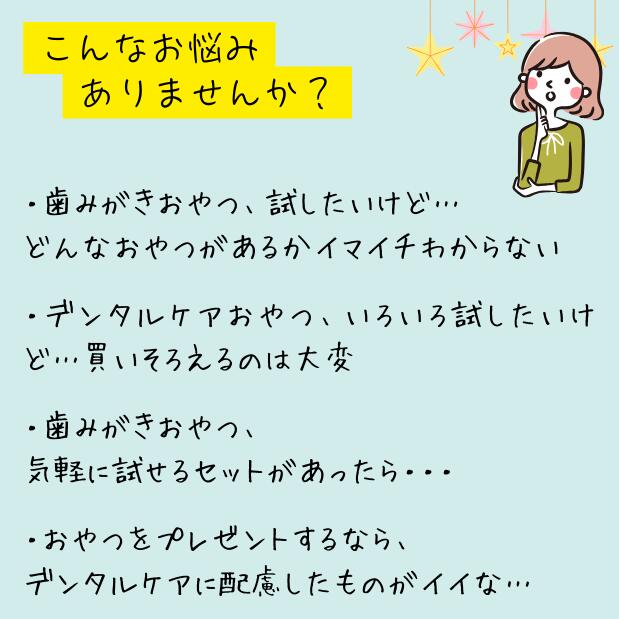 こんなお悩み
ありませんか？
・歯みがきおやつ、試したいけど…
どんなおやつがあるかイマイチわからない
・デンタルケアおやつ、いろいろ試したいけ
ど…買いそろえるのは大変
・歯みがきおやつ、
気軽に試せるセットがあったら・・・
・おやつをプレゼントするなら、
デンタルケアに配慮したものがイイな…